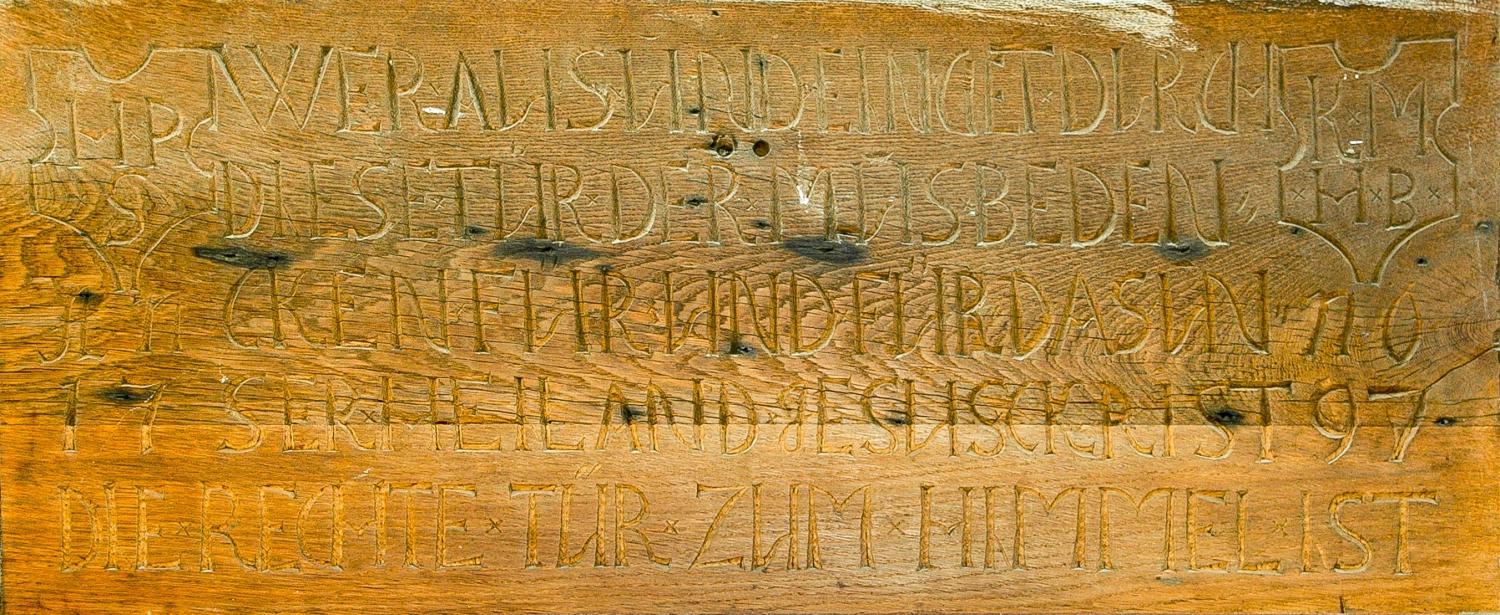 HP WER AUS UND EINGET DURCH K×M
S DIESE TÜR DER MUS BEDEN ×H×B×
An CKEN FÜR UND FÜR DAS UN no
17 SER HEILAND JESUS CHRIST 97
DIE RECHTE TÜR ZUM HIMMEL IST